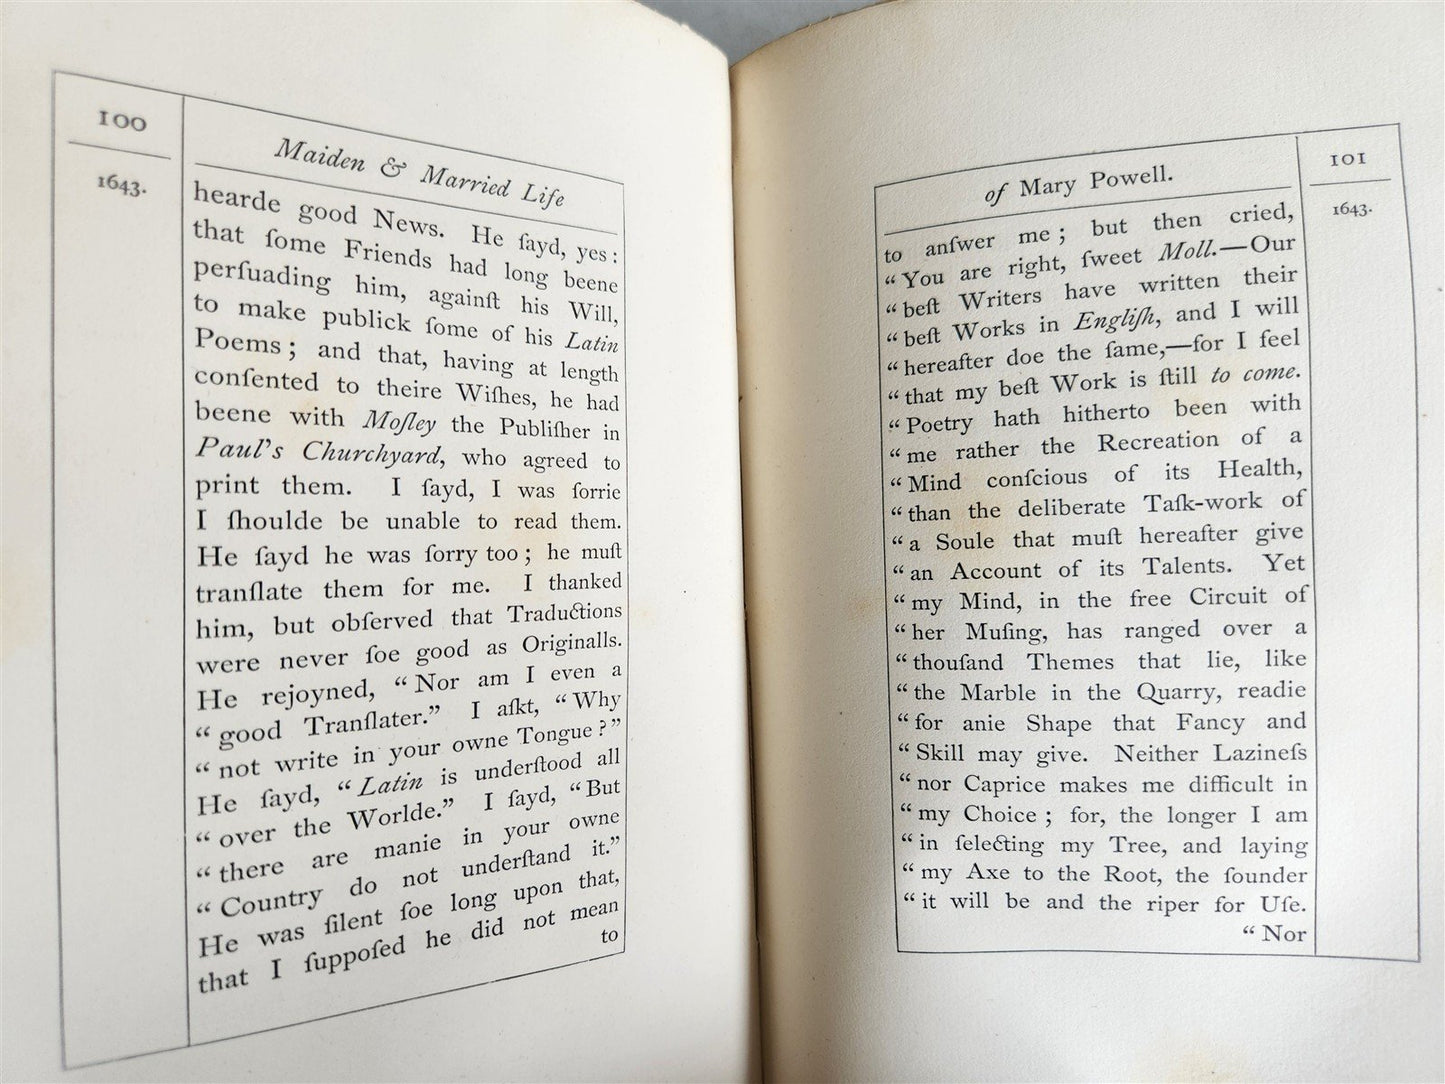 100
1643.
Maiden & Married Life
hearde good News. He ſayd, yes :
that ſome Friends had long beene
perſuading him, againſt his Will,
to make publick ſome of his Latin
Poems ; and that, having at length
conſented to theire Wiſhes, he had
beene with Moſley the Publiſher in
Paul's Churchyard, who agreed to
print them. I ſayd, I was ſorrie
I ſhoulde be unable to read them.
He ſayd he was ſorry too ; he muſt
tranſlate them for me. I thanked
him, but obſerved that Traductions
were never ſoe good as Originalls.
He rejoyned, “ Nor am I even a
“ good Tranſlater.” I aſkt, “ Why
“ not write in your owne Tongue ? ”
He ſayd, “ Latin is underſtood all
“ over the Worlde.” I ſayd, “ But
“ there are manie in your owne
“ Country do not underſtand it.”
He was ſilent ſoe long upon that,
that I ſuppoſed he did not mean
to
of Mary Powell.
101
1643.
to anſwer me ; but then cried,
“ You are right, ſweet Moll.—Our
“ beſt Writers have written their
“ beſt Works in Engliſh, and I will
“ hereafter doe the ſame,—for I feel
“ that my beſt Work is ſtill to come.
“ Poetry hath hitherto been with
“ me rather the Recreation of a
“ Mind conſcious of its Health,
“ than the deliberate Taſk-work of
“ a Soule that muſt hereafter give
“ an Account of its Talents. Yet
“ my Mind, in the free Circuit of
“ her Muſing, has ranged over a
“ thouſand Themes that lie, like
“ the Marble in the Quarry, readie
“ for anie Shape that Fancy and
“ Skill may give. Neither Lazineſs
“ nor Caprice makes me difficult in
“ my Choice ; for, the longer I am
“ in ſelecting my Tree, and laying
“ my Axe to the Root, the ſounder
“ it will be and the riper for Uſe.
“ Nor